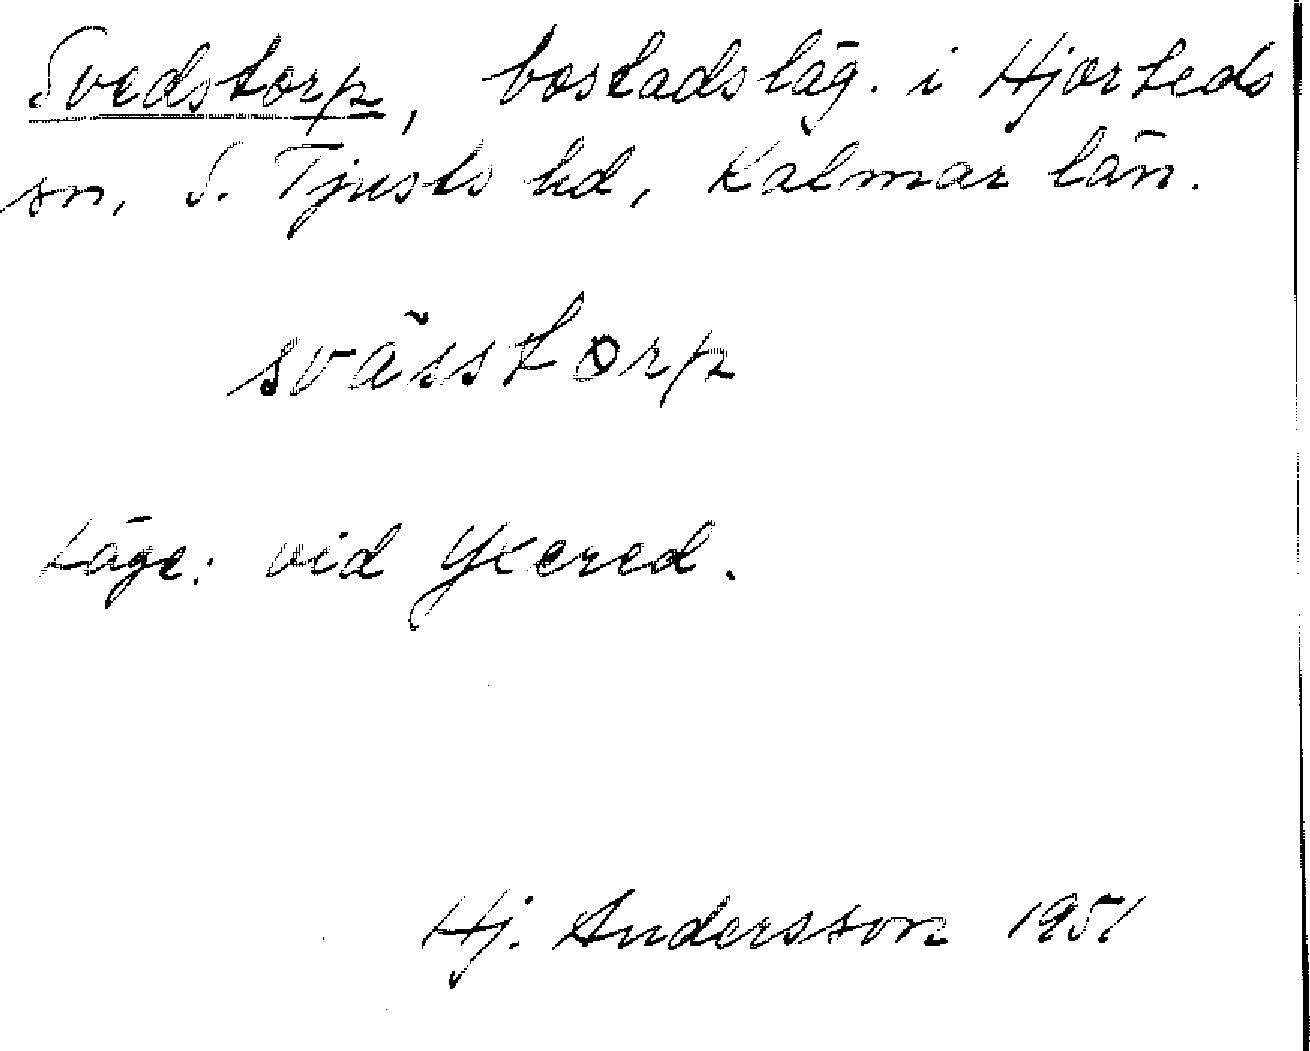 Svedstorp, bostadsläg. i Hjorteds
sn, S. Tjusts hd, Kalmar län.
svässtorp
Läge: vid Yxered.
Hj. Andersson 1951